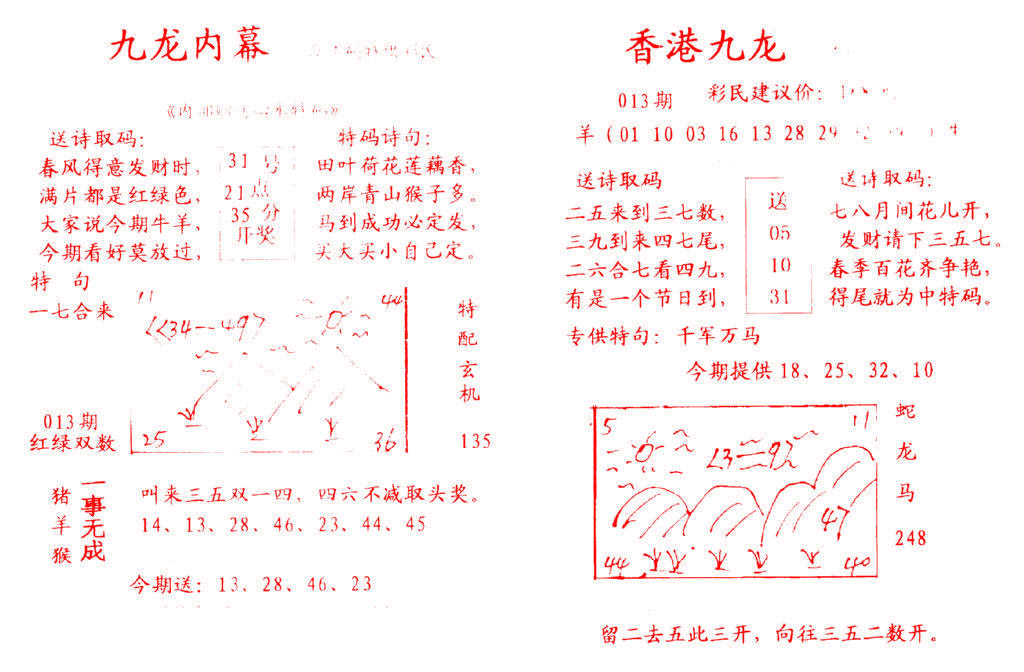 九龙内幕
送诗取码：
春风得意发财时，
满片都是红绿色，
大家说今期牛羊，
今期看好莫放过，
31号
21点
35分
开奖
特码诗句：
田叶荷花莲藕香，
两岸青山猴子多。
马到成功必定发，
买大买小自己定。
特 句
一七合来
013期
红绿双数
11
44
34—49
25
36
特
配
玄
机
135
猪
羊
猴
一事无成
叫来三五双一四，四六不减取头奖。
14、13、28、46、23、44、45
今期送：13、28、46、23
香港九龙
013期
彩民建议价：
羊（01 10 03 16 13 28 29
送诗取码
二五来到三七数，
三九到来四七尾，
二六合七看四九，
有是一个节日到，
送
05
10
31
送诗取码：
七八月间花儿开，
发财请下三五七。
春季百花齐争艳，
得尾就为中特码。
专供特句：千军万马
今期提供18、25、32、10
5
11
47
44
40
蛇
龙
马
248
留二去五此三开，向往三五二数开。